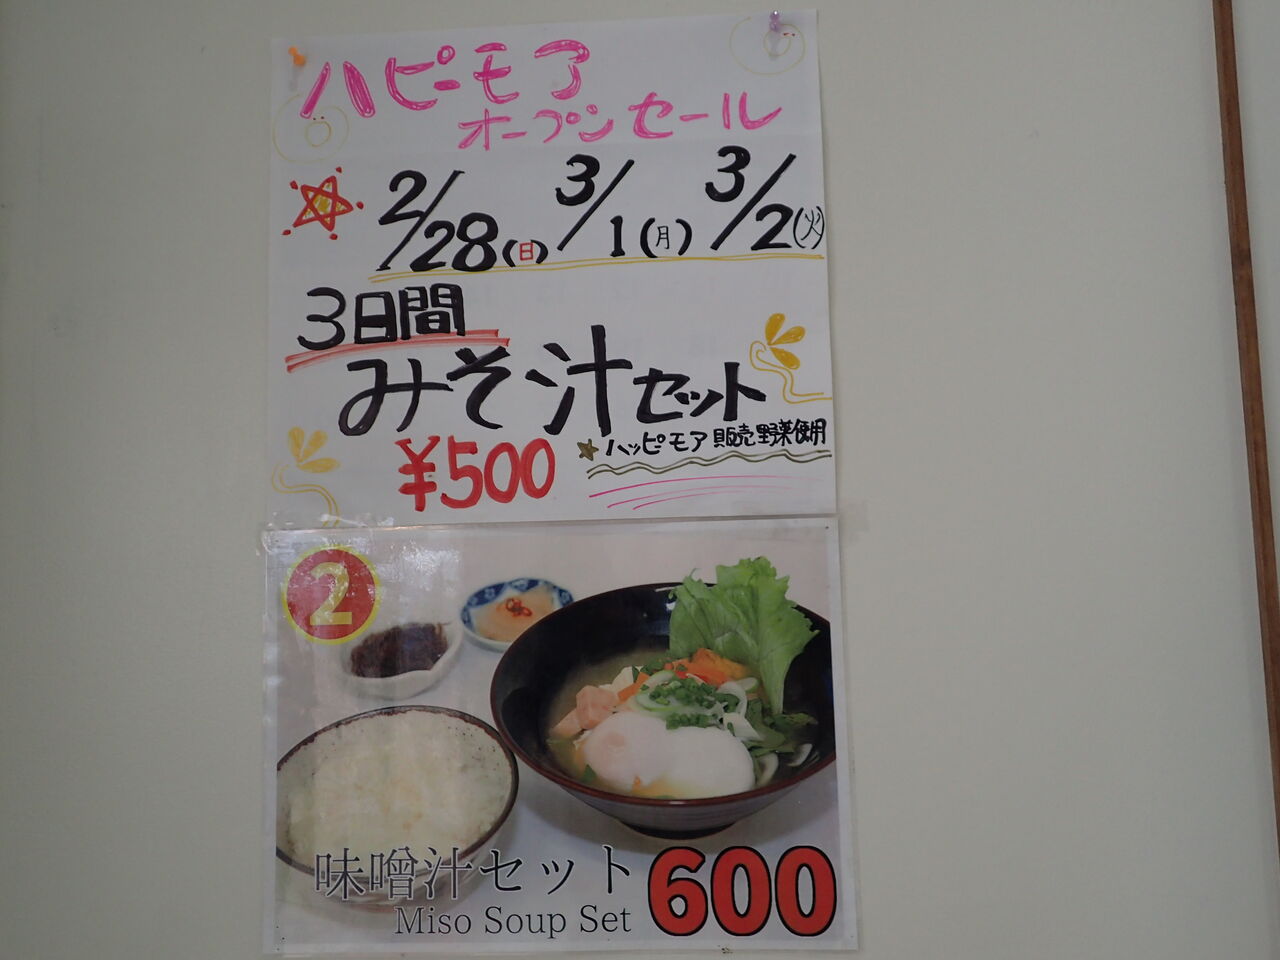 ハピーモア
オープンセール
2/28(日) 3/1(月) 3/2(火)
3日間
みそ汁セット
¥500 ★ハッピーモア販売野菜使用
2
味噌汁セット 600
Miso Soup Set